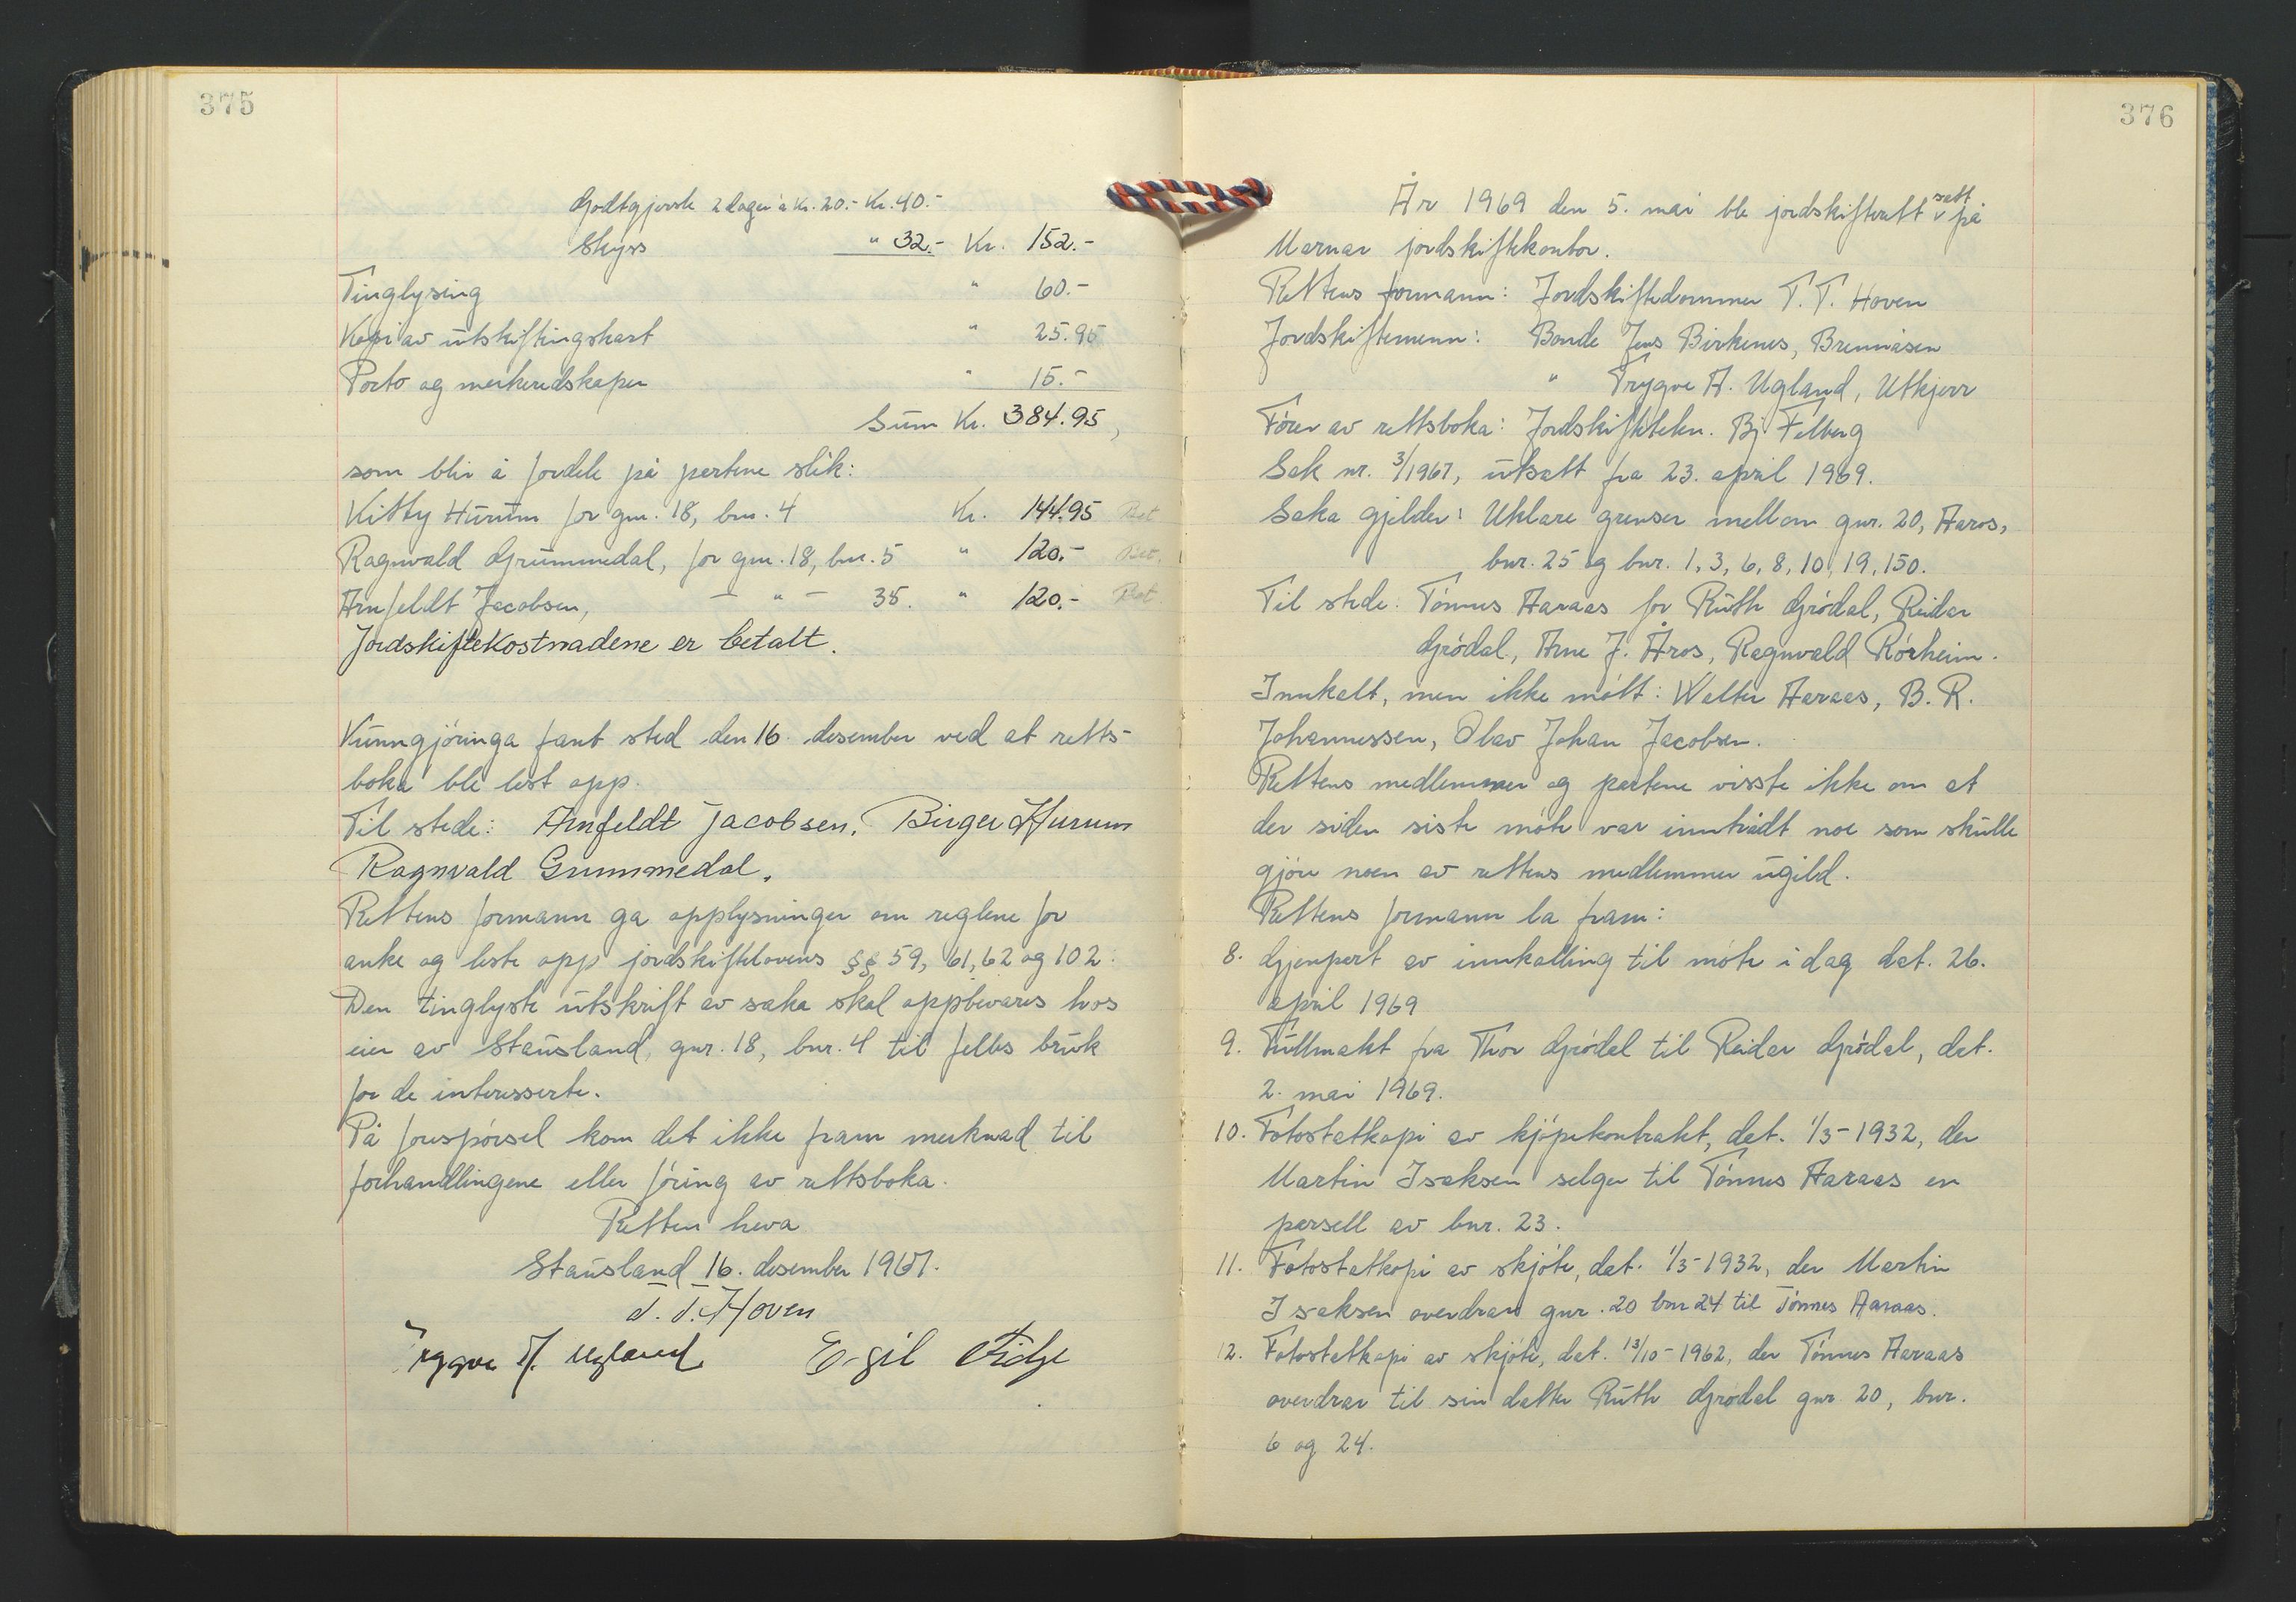 375
Godtgjersle 2 dager à Kr. 20.- Kr. 40.-
Skyss " 32.- Kr. 152.-
Tinglysing " 60.-
Kopi av utskiftingskart " 25.95
Porto og merkeredskaper " 15.-
Sum Kr. 384.95,
som blir å fordele på partene slik:
Kitty Hurum for gnr. 18, bnr. 4 Kr. 144.95 Bet
Ragnvald Grummedal, for gnr. 18, bnr. 5 " 120.- Bet.
Arnfeldt Jacobsen, — " — 35. " 120.- Bet.
Jordskiftekostnadene er betalt.
Kunngjöringa fant sted den 16. desember ved at retts-
boka ble lest opp.
Til stede: Arnfeldt Jacobsen, Birger Hurum
Ragnvald Grummedal.
Rettens formann ga opplysninger om reglene for
anke og leste opp jordskiftelovens §§ 59, 61, 62 og 102.
Den tinglyste utskrift av saka skal oppbevares hos
eier av Stausland, gnr. 18, bnr. 4 til felles bruk
for de interesserte.
På forespörsel kom det ikke fram merknad til
forhandlingene eller föring av rettsboka.
Retten heva
Stausland 16. desember 1967.
T. T. Hoven
Trygve A. Ugland Egil Fidje
376
År 1969 den 5. mai ble jordskifterett satt på
Marnar jordskiftekontor.
Rettens formann: Jordskiftedommer T. T. Hoven
Jordskiftemenn: Bonde Jens Birkenes, Brennåsen
" Trygve A. Ugland, Utkjerr
Förer av rettsboka: Jordskiftetekn. Bj. Felberg
Sak nr. 3/1967, utsatt fra 23. april 1969.
Saka gjelder: Uklare grenser mellom gnr. 20, Aaros,
bnr. 25 og bnr. 1, 3, 6, 8, 10, 19, 150.
Til stede: Tönnes Aaraas for Ruth Grödal, Reidar
Grödal, Arne J. Åros, Ragnvald Rörheim.
Innkalt, men ikke mött: Walter Aaraas, B. R.
Johannessen, Olav Johan Jacobsen.
Rettens medlemmer og partene visste ikke om at
der siden siste möte var inntrådt noe som skulle
gjöre noen av rettens medlemmer ugild.
Rettens formann la fram:
8. Gjenpart av innkalling til möte i dag dat. 26.
april 1969
9. Fullmakt fra Thor Grödal til Reidar Grödal, dat.
2. mai 1969.
10. Fotostatkopi av kjöpekontrakt, dat. 1/3-1932, der
Martin Isaksen selger til Tönnes Aaraas en
parsell av bnr. 23.
11. Fotostatkopi av skjöte, dat. 1/3-1932, der Martin
Isaksen overdrar gnr. 20 bnr 24 til Tönnes Aaraas.
12. Fotostatkopi av skjöte, dat. 13/10-1962, der Tönnes Aaraas
overdrar til sin datter Ruth Grödal gnr. 20, bnr.
6 og 24.